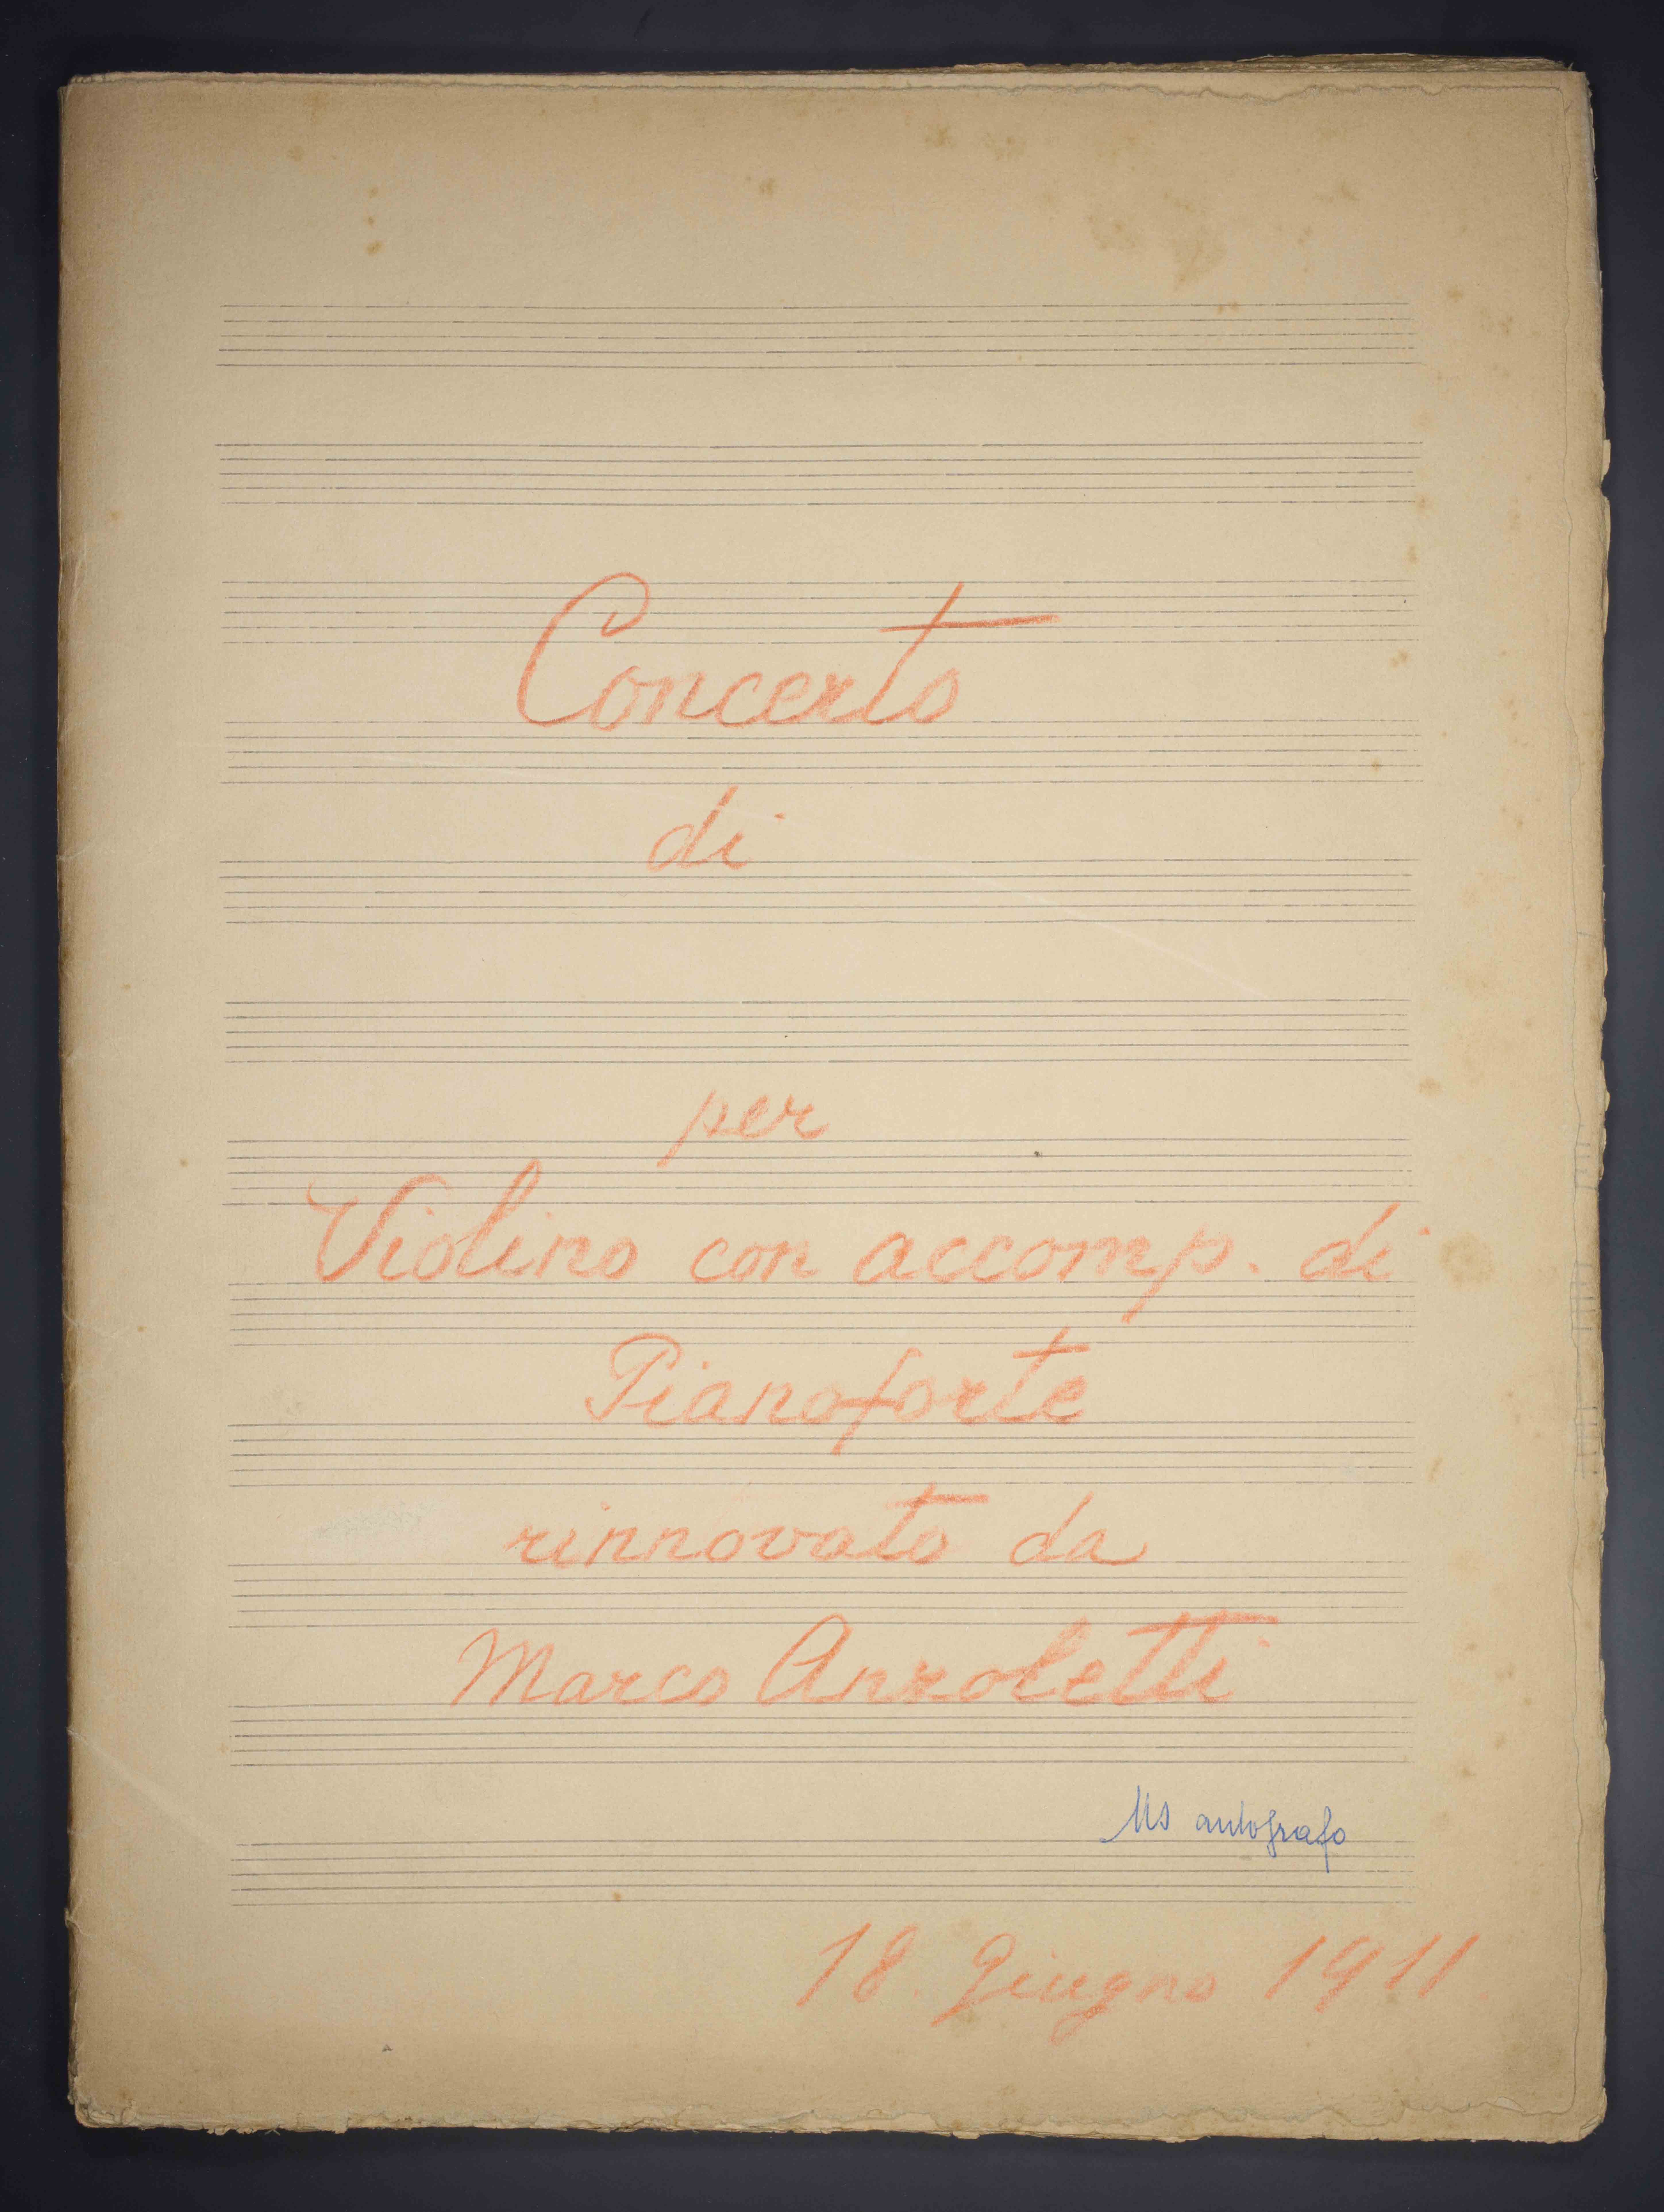 Concerto
di
per
Violino con accomp. di
Pianoforte
rinnovato da
Marco Anzoletti
Ms autografo
18. Giugno 1911.